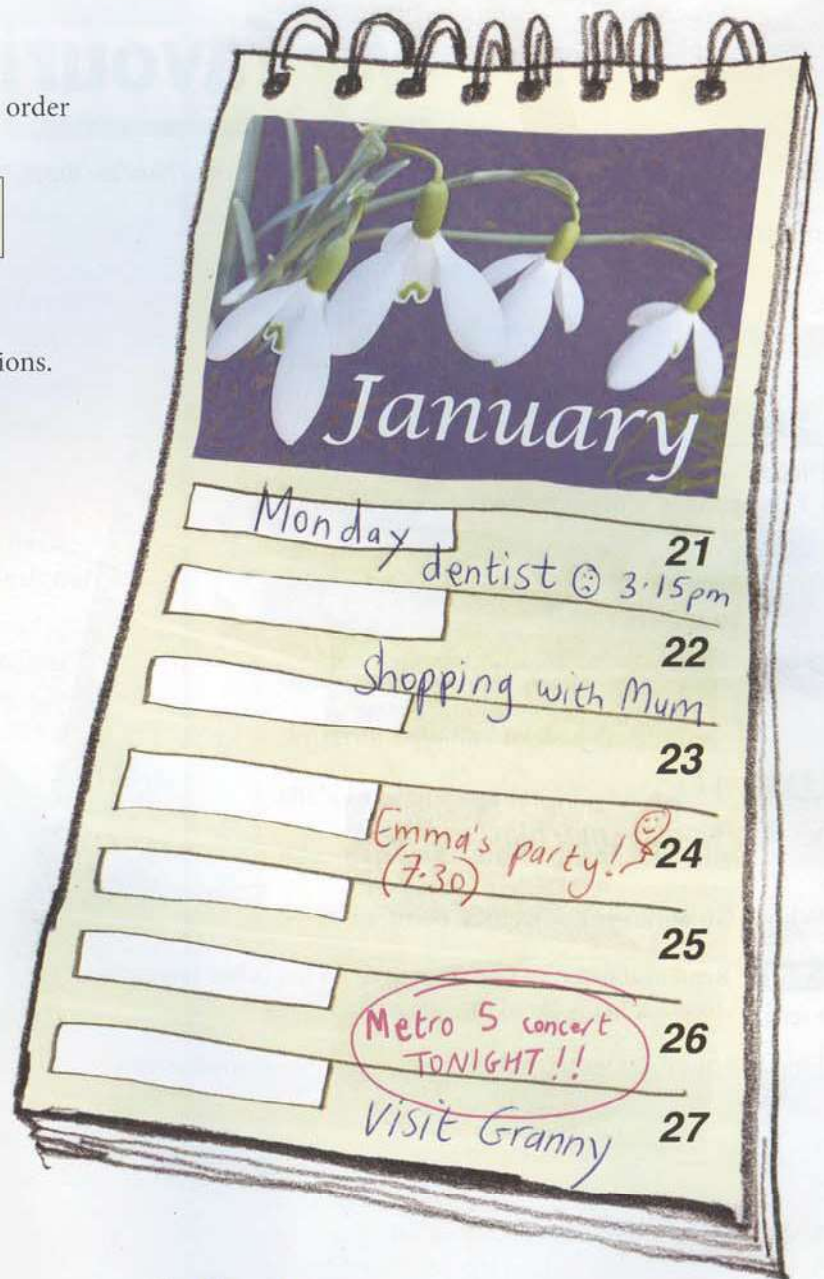 avour
order
ions.
January
Monday
21
dentist 3.15pm
22
Shopping with Mum
23
Emma's party! 24
(7.30)
25
Metro 5 concert
TONIGHT!!
26
Visit Granny
27